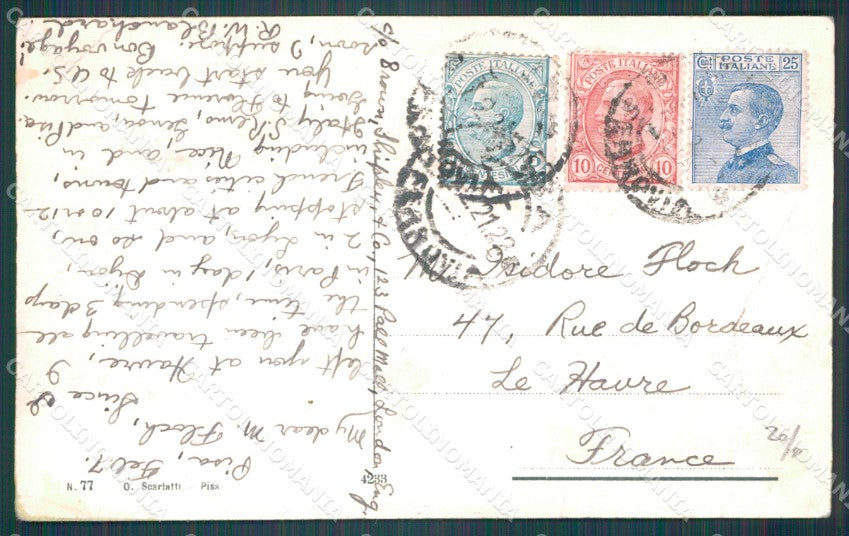 Pisa, Feb 7.
My dear M. Floch,
Since I
left you at Havre,
have been travelling all
the time, spending 3 days
in Paris, 1 day in Dijon,
2 in Lyon, and so on,
stopping at about 10 or 12
French cities and towns,
including Nice, and in
Italy S. Remo, Genoa, and Pisa.
Going to Florence tomorrow.
You start back to U.S.
soon, I suppose. Bon voyage!
R. W. Blanchard
c/o Brown, Shipley & Co, 123 Pall Mall, London, Eng
POSTE ITALIANE
POSTE ITALIANE
10 CENT 10
POSTE
ITALIANE
25
M. Isidore Floch
47, Rue de Bordeaux
Le Havre
France
N. 77 G. Scarlatti - Pisa
4233
CARTOLINOMANIA